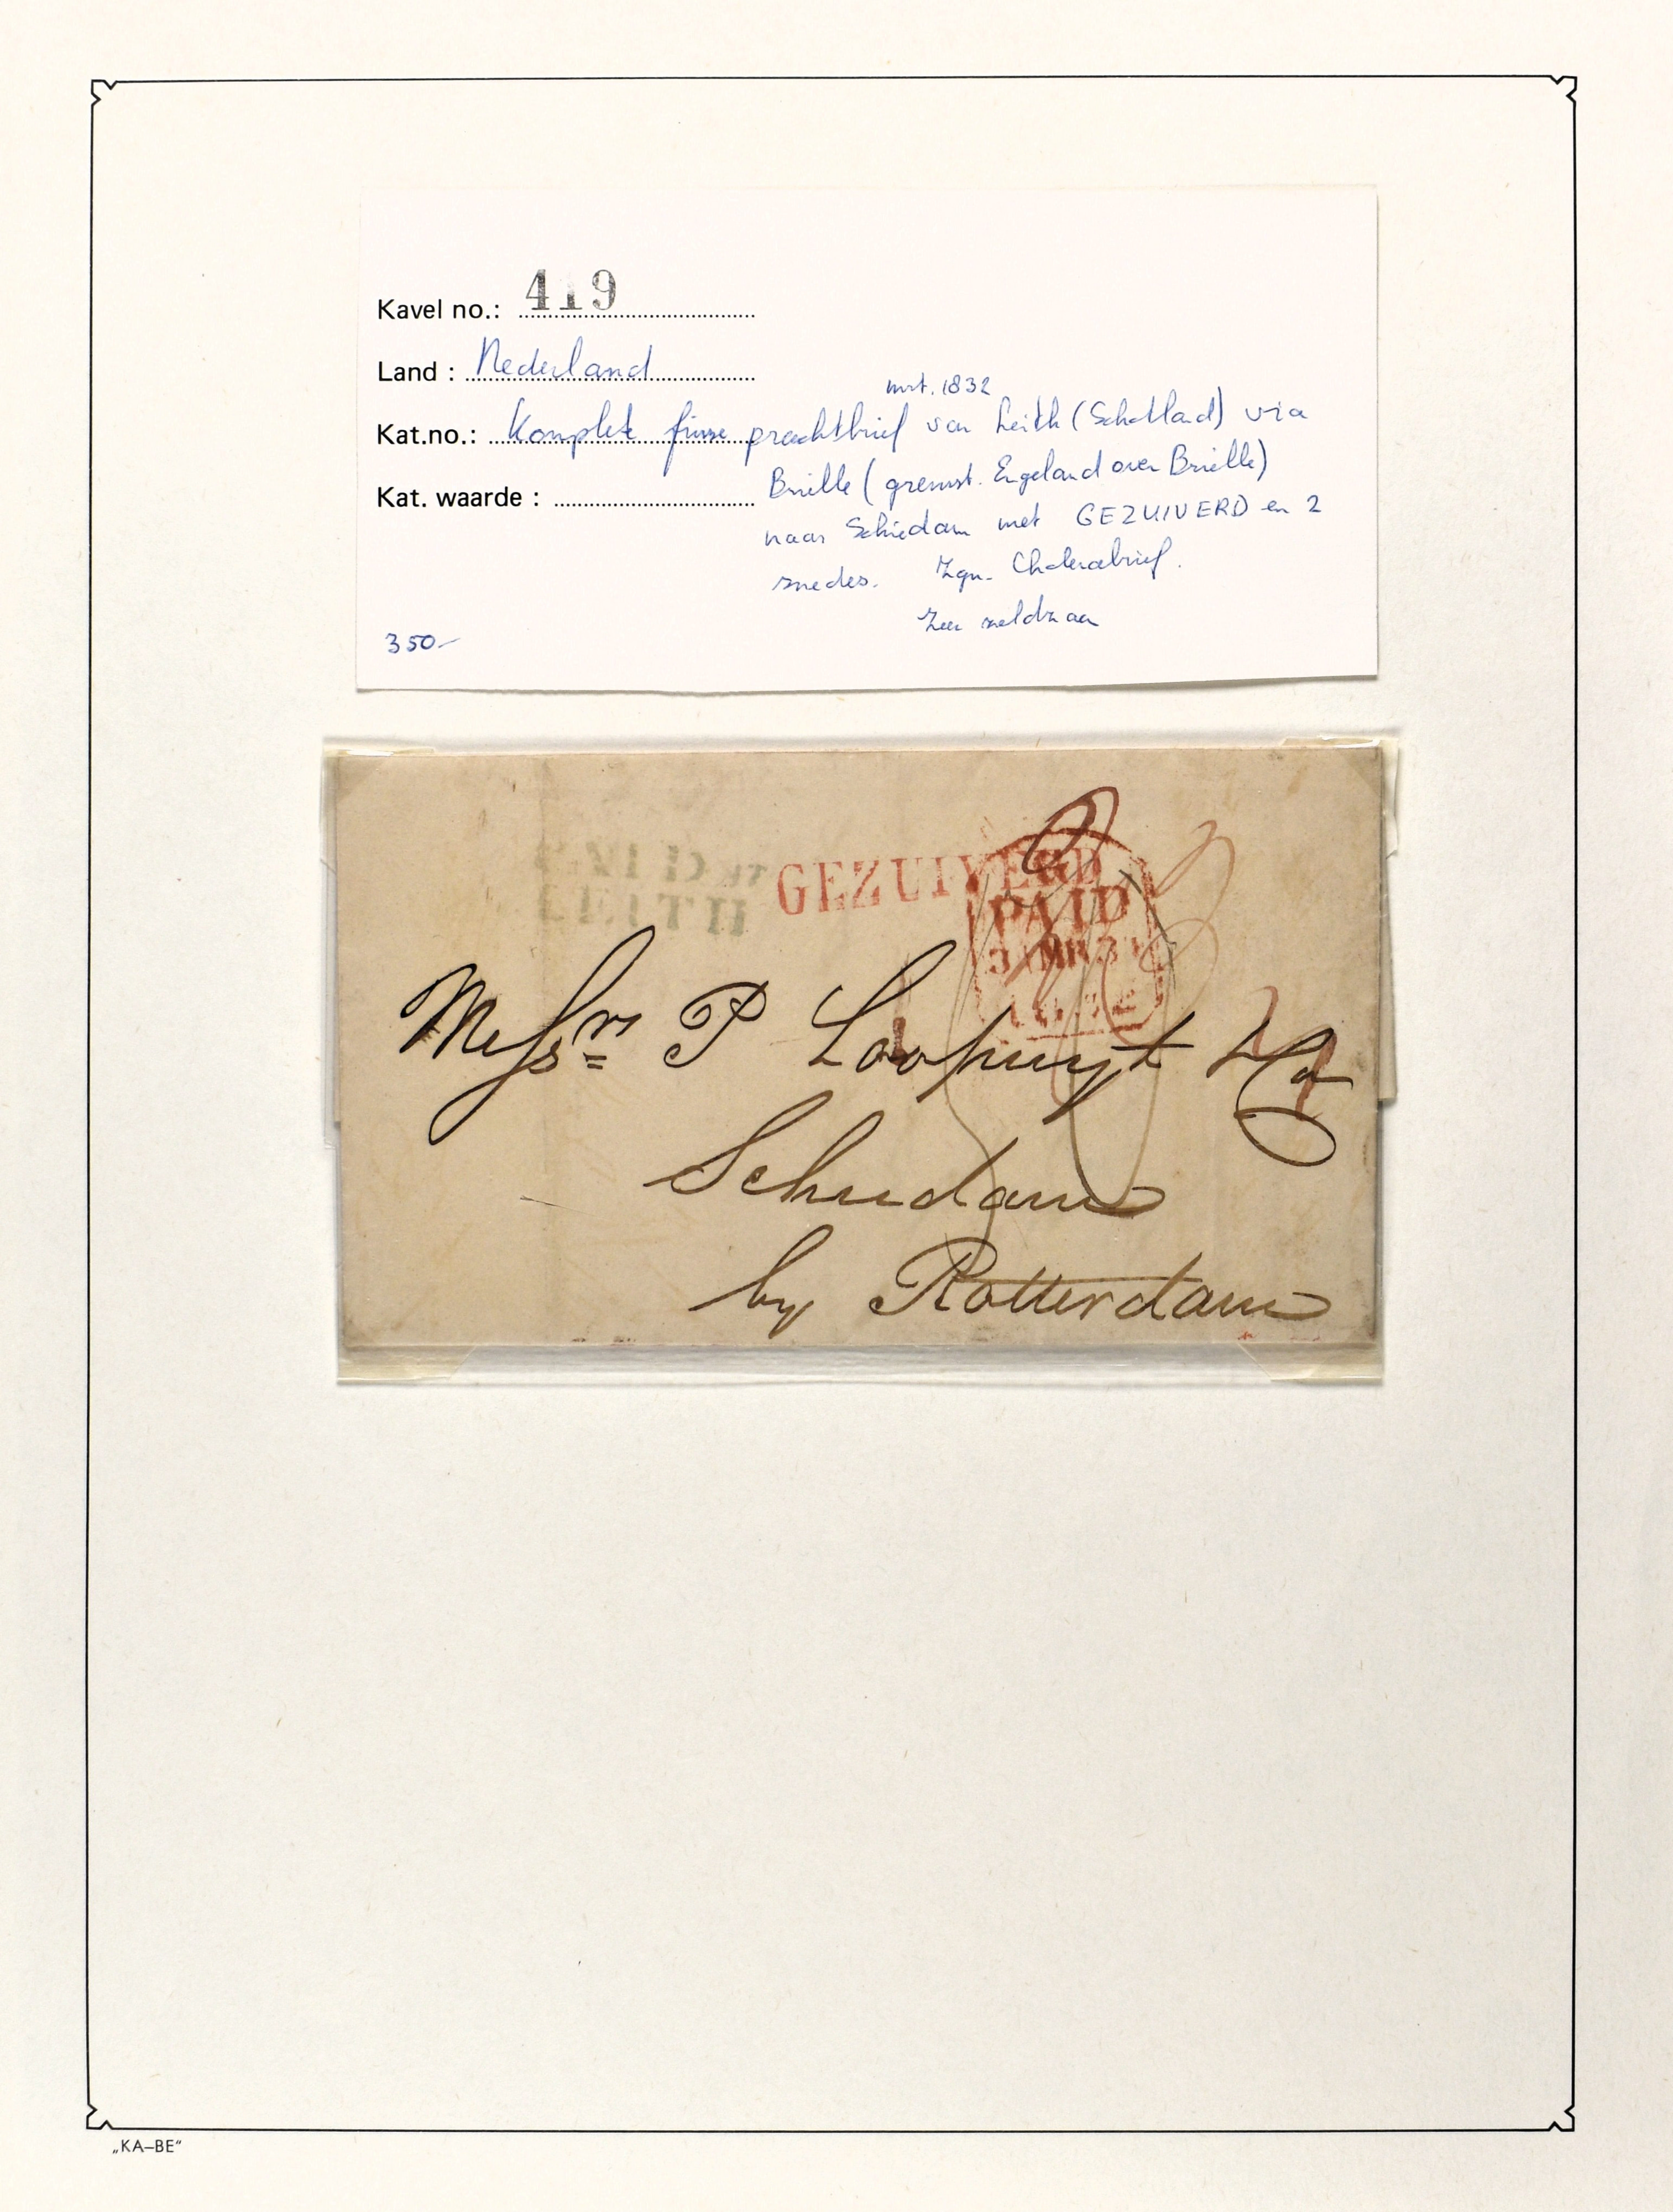 Kavel no.: 419
Land : Nederland
mrt. 1832
Kat.no.: Komplete frisse prachtbrief van Leith (Schotland) via
Kat. waarde : Brielle (grensst. Engeland over Brielle)
naar Schiedam met GEZUIVERD en 2
snedes. Zgn. Cholerabrief.
Zeer zeldzaam
350-
PAID AT
LEITH
GEZUIVERD
PAID
1832
Messrs P Loopuyt & Co
Schiedam
by Rotterdam
„KA–BE“